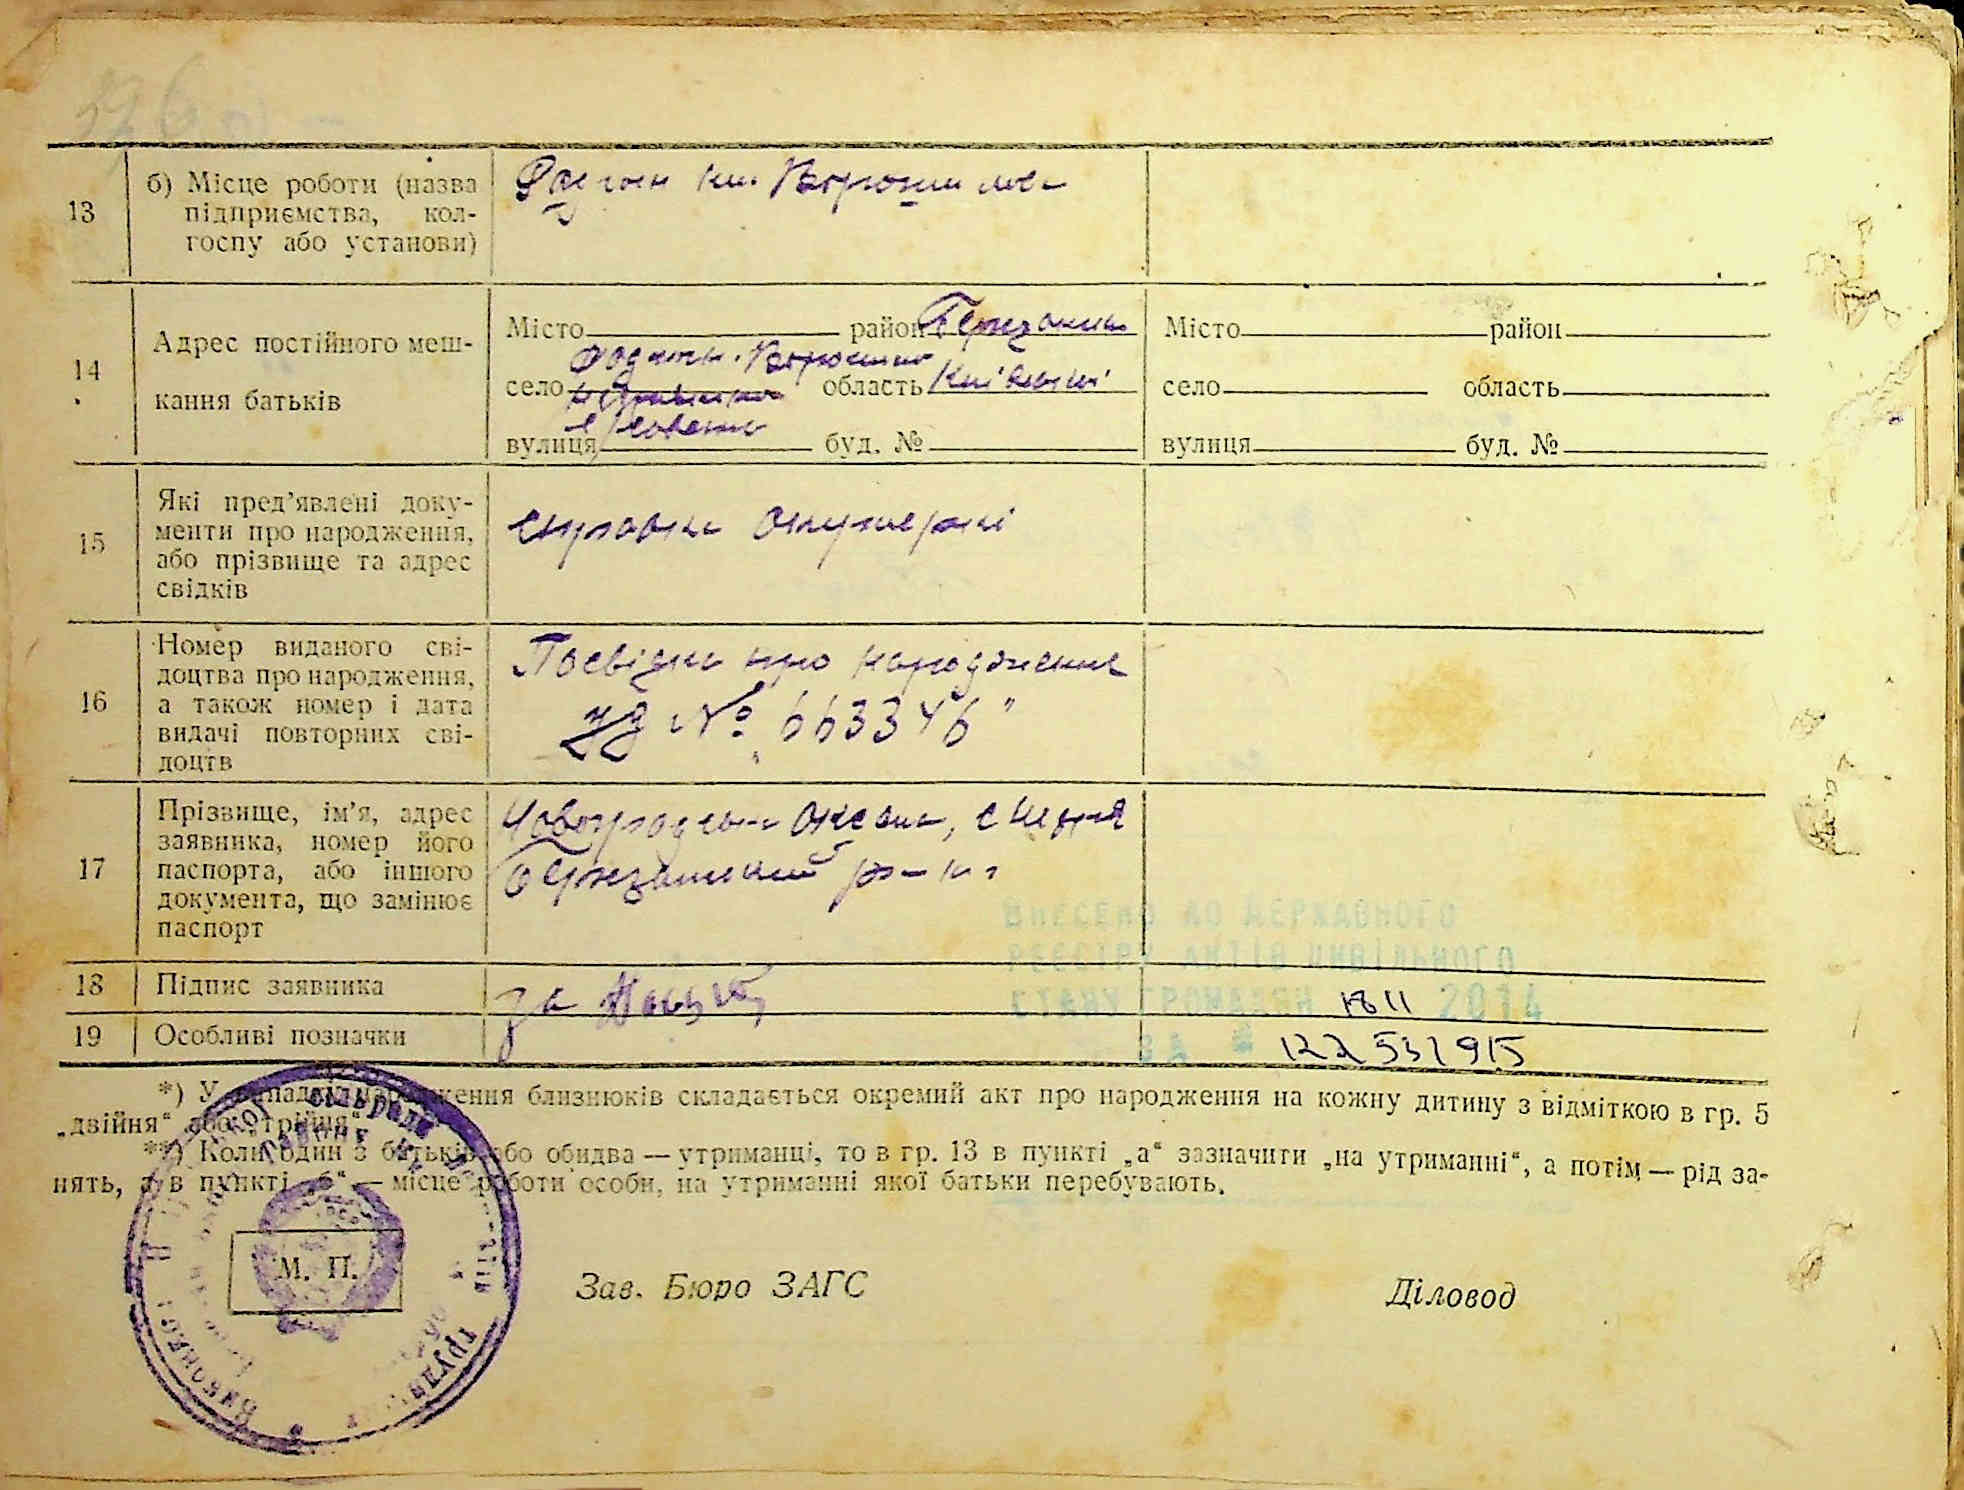 13
б) Місце роботи (назва
підприємства, кол-
госпу або установи)
Радгосп ім. Ворошилова
14
Адрес постійного меш-
кання батьків
Місто район
село область Київської
вулиця буд. №
Місто район
село область
вулиця буд. №
15
Які пред’явлені доку-
менти про народження,
або прізвище та адрес
свідків
справка акушерки
16
Номер виданого сві-
доцтва про народження,
а також номер і дата
видачі повторних сві-
доцтв
Посвідка про народження
№ 663346"
17
Прізвище, ім’я, адрес
заявника, номер його
паспорта, або іншого
документа, що замінює
паспорт
р-н
18
Підпис заявника
за
19
Особливі позначки
Внесено до Державного
реєстру актів цивільного
стану громадян 18 11 2014
за № 122 531 915
*) У випадку народження близнюків складається окремий акт про народження на кожну дитину з відміткою в гр. 5
„двійня“ або „трійня“.
**) Коли один з батьків або обидва — утриманці, то в гр. 13 в пункті „а“ зазначити „на утриманні“, а потім — рід за-
нять, а в пункті „б“ — місце роботи особи, на утриманні якої батьки перебувають.
М. П.
Зав. Бюро ЗАГС
Діловод